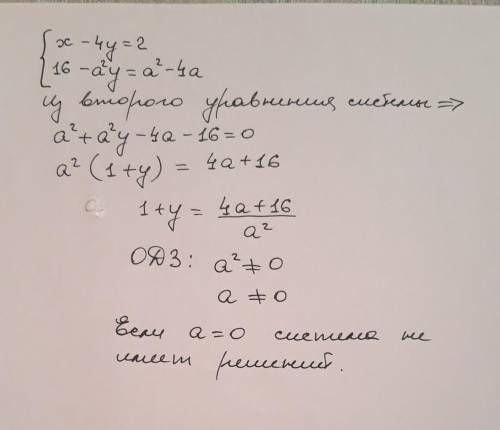 x - 4y = 2
16 - a²y = a² - 4a
Из второго уравнения системы ⇒
a² + a²y - 4a - 16 = 0
a² (1 + y) = 4a + 16
1 + y = (4a + 16) / a²
ОДЗ: a² ≠ 0
a ≠ 0
Если a = 0 система не
имеет решений.